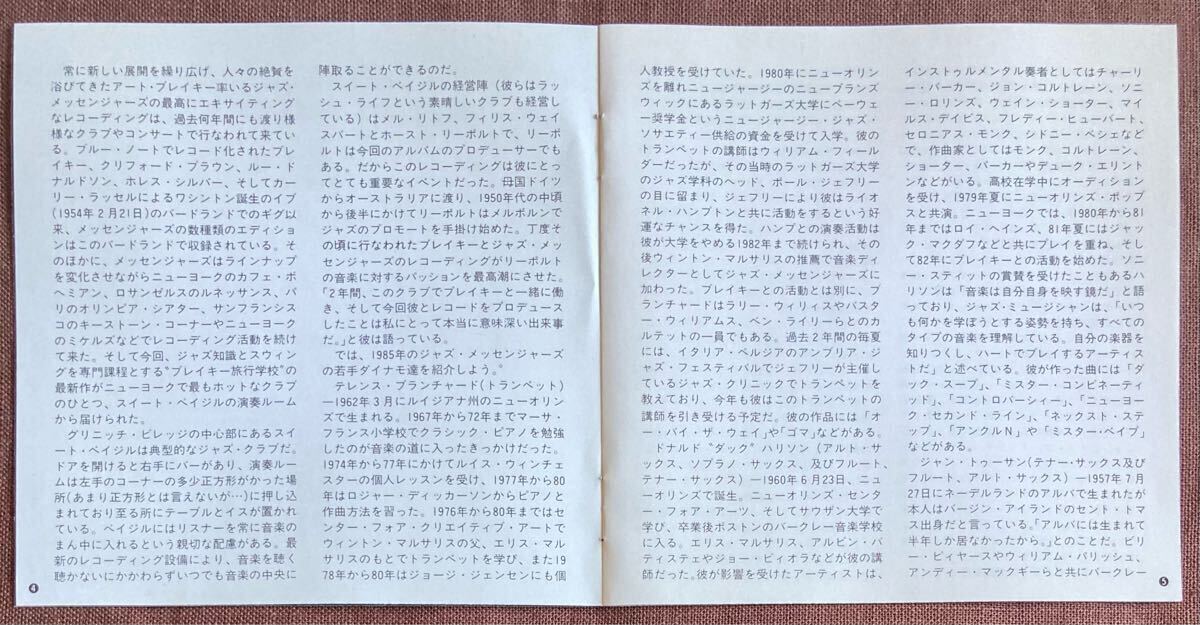 常に新しい展開を繰り広げ、人々の絶賛を
浴びてきたアート・ブレイキー率いるジャズ・
メッセンジャーズの最高にエキサイティング
なレコーディングは、過去何年間にも渡り様
様なクラブやコンサートで行なわれて来てい
る。ブルー・ノートでレコード化されたブレ
イキー、クリフォード・ブラウン、ルー・ド
ナルドソン、ホレス・シルバー、そしてカー
リー・ラッセルによるワシントン誕生のイブ
(1954年2月21日)のバードランドでのギグ以
来、メッセンジャーズの数種類のエディショ
ンはこのバードランドで収録されている。そ
のほかに、メッセンジャーズはラインナップ
を変化させながらニューヨークのカフェ・ボ
ヘミアン、ロサンゼルスのルネッサンス、パ
リのオリンピア・シアター、サンフランシス
コのキーストーン・コーナーやニューヨーク
のミケルズなどでレコーディング活動を続け
て来た。そして今回、ジャズ知識とスウィン
グを専門課程とする“ブレイキー旅行学校”の
最新作がニューヨークで最もホットなクラブ
のひとつ、スイート・ベイジルの演奏ルーム
から届けられた。
グリニッチ・ビレッジの中心部にあるスイ
ート・ベイジルは典型的なジャズ・クラブだ。
ドアを開けると右手にバーがあり、演奏ルー
ムは左手のコーナーの多少正方形がかった場
所(あまり正方形とは言えないが…)に押し込
まれており至る所にテーブルとイスが置かれ
ている。ベイジルにはリスナーを常に音楽の
まん中に入れるという親切な配慮がある。最
新のレコーディング設備により、音楽を聴く
聴かないにかかわらずいつでも音楽の中央に
❹
陣取ることができるのだ。
スイート・ベイジルの経営陣（彼らはラッ
シュ・ライフという素晴しいクラブも経営し
ている）はメル・リトフ、フィリス・ウェイ
スバートとホースト・リーボルトで、リーボ
ルトは今回のアルバムのプロデューサーでも
ある。だからこのレコーディングは彼にとっ
てとても重要なイベントだった。母国ドイツ
からオーストラリアに渡り、1950年代の中頃
から後半にかけてリーボルトはメルボルンで
ジャズのプロモートを手掛け始めた。丁度そ
の頃に行なわれたブレイキーとジャズ・メッ
センジャーズのレコーディングがリーボルト
の音楽に対するパッションを最高潮にさせた。
「2年間、このクラブでブレイキーと一緒に働
き、そして今回彼とレコードをプロデュース
したことは私にとって本当に意味深い出来事
だ。」と彼は語っている。
では、1985年のジャズ・メッセンジャーズ
の若手ダイナモ達を紹介しよう。
テレンス・ブランチャード(トランペット)
—1962年3月にルイジアナ州のニューオリン
ズで生まれる。1967年から72年までマーサ・
フランス小学校でクラシック・ピアノを勉強
したのが音楽の道に入ったきっかけだった。
1974年から77年にかけてルイス・ウィンチェ
スターの個人レッスンを受け、1977年から80
年はロジャー・ディッカーソンからピアノと
作曲方法を習った。1976年から80年まではセ
ンター・フォア・クリエイティブ・アートで
ウィントン・マルサリスの父、エリス・マル
サリスのもとでトランペットを学び、また19
78年から80年はジョージ・ジェンセンにも個
人教授を受けていた。1980年にニューオリン
ズを離れニュージャージーのニューブランズ
ウィックにあるラットガーズ大学にベーウェ
ー奨学金というニュージャージー・ジャズ・
ソサエティー供給の資金を受けて入学。彼の
トランペットの講師はウィリアム・フィール
ダーだったが、その当時のラットガーズ大学
のジャズ学科のヘッド、ポール・ジェフリー
の目に留まり、ジェフリーにより彼はライオ
ネル・ハンプトンと共に活動をするという好
運なチャンスを得た。ハンプとの演奏活動は
彼が大学をやめる1982年まで続けられ、その
後ウィントン・マルサリスの推薦で音楽ディ
レクターとしてジャズ・メッセンジャーズに
加わった。ブレイキーとの活動とは別に、ブ
ランチャードはラリー・ウィリィスやバスタ
ー・ウィリアムス、ベン・ライリーらとのカ
ルテットの一員でもある。過去2年間の毎夏
には、イタリア・ペルジアのアンブリア・ジ
ャズ・フェスティバルでジェフリーが主催し
ているジャズ・クリニックでトランペットを
教えており、今年も彼はこのトランペットの
講師を引き受ける予定だ。彼の作品には「オ
ー・バイ・ザ・ウェイ」や「ゴマ」などがある。
ドナルド“ダック”ハリソン（アルト・サ
ックス、ソプラノ・サックス、及びフルート、
テナー・サックス）—1960年6月23日、ニュ
ーオリンズで誕生。ニューオリンズ・センタ
ー・フォア・アーツ、そしてサウザン大学で
学び、卒業後ボストンのバークレー音楽学校
に入る。エリス・マルサリス、アルビン・バ
ティステェやジョー・ビィオラなどが彼の講
師だった。彼が影響を受けたアーティストは、
インストゥルメンタル奏者としてはチャーリ
ー・パーカー、ジョン・コルトレーン、ソニ
ー・ロリンズ、ウェイン・ショーター、マイ
ルス・デイビス、フレディー・ヒューバート、
セロニアス・モンク、シドニー・ベシェなど
で、作曲家としてはモンク、コルトレーン、
ショーター、パーカーやデューク・エリント
ンなどがいる。高校在学中にオーディション
を受け、1979年夏にニューオリンズ・ポップ
スと共演。ニューヨークでは、1980年から81
年まではロイ・ヘインズ、81年夏にはジャッ
ク・マクダフなどと共にプレイを重ね、そし
て82年にブレイキーとの活動を始めた。ソニ
ー・スティットの賞賛を受けたこともあるハ
リソンは「音楽は自分自身を映す鏡だ」と語
っており、ジャズ・ミュージシャンは、「いつ
も何かを学ぼうとする姿勢を持ち、すべての
タイプの音楽を理解している。自分の楽器を
知りつくし、ハートでプレイするアーティス
トだ」と述べている。彼が作った曲には「ダ
ック・スープ」、「ミスター・コンビネーティ
ッド」、「コントロバーシィー」、「ニューヨー
ク・セカンド・ライン」、「ネックスト・ステ
ップ」、「アンクルN」や「ミスター・ベイブ」
などがある。
ジャン・トゥーサン(テナー・サックス及び
フルート、アルト・サックス)—1957年7月
27日にネーデルランドのアルバで生まれたが
本人はバージン・アイランドのセント・トマ
ス出身だと言っている。「アルバには生まれて
半年しか居なかったから。」とのことだ。ビリ
ー・ピィヤースやウィリアム・パリッシュ、
アンディー・マックギーらと共にバークレー
❺